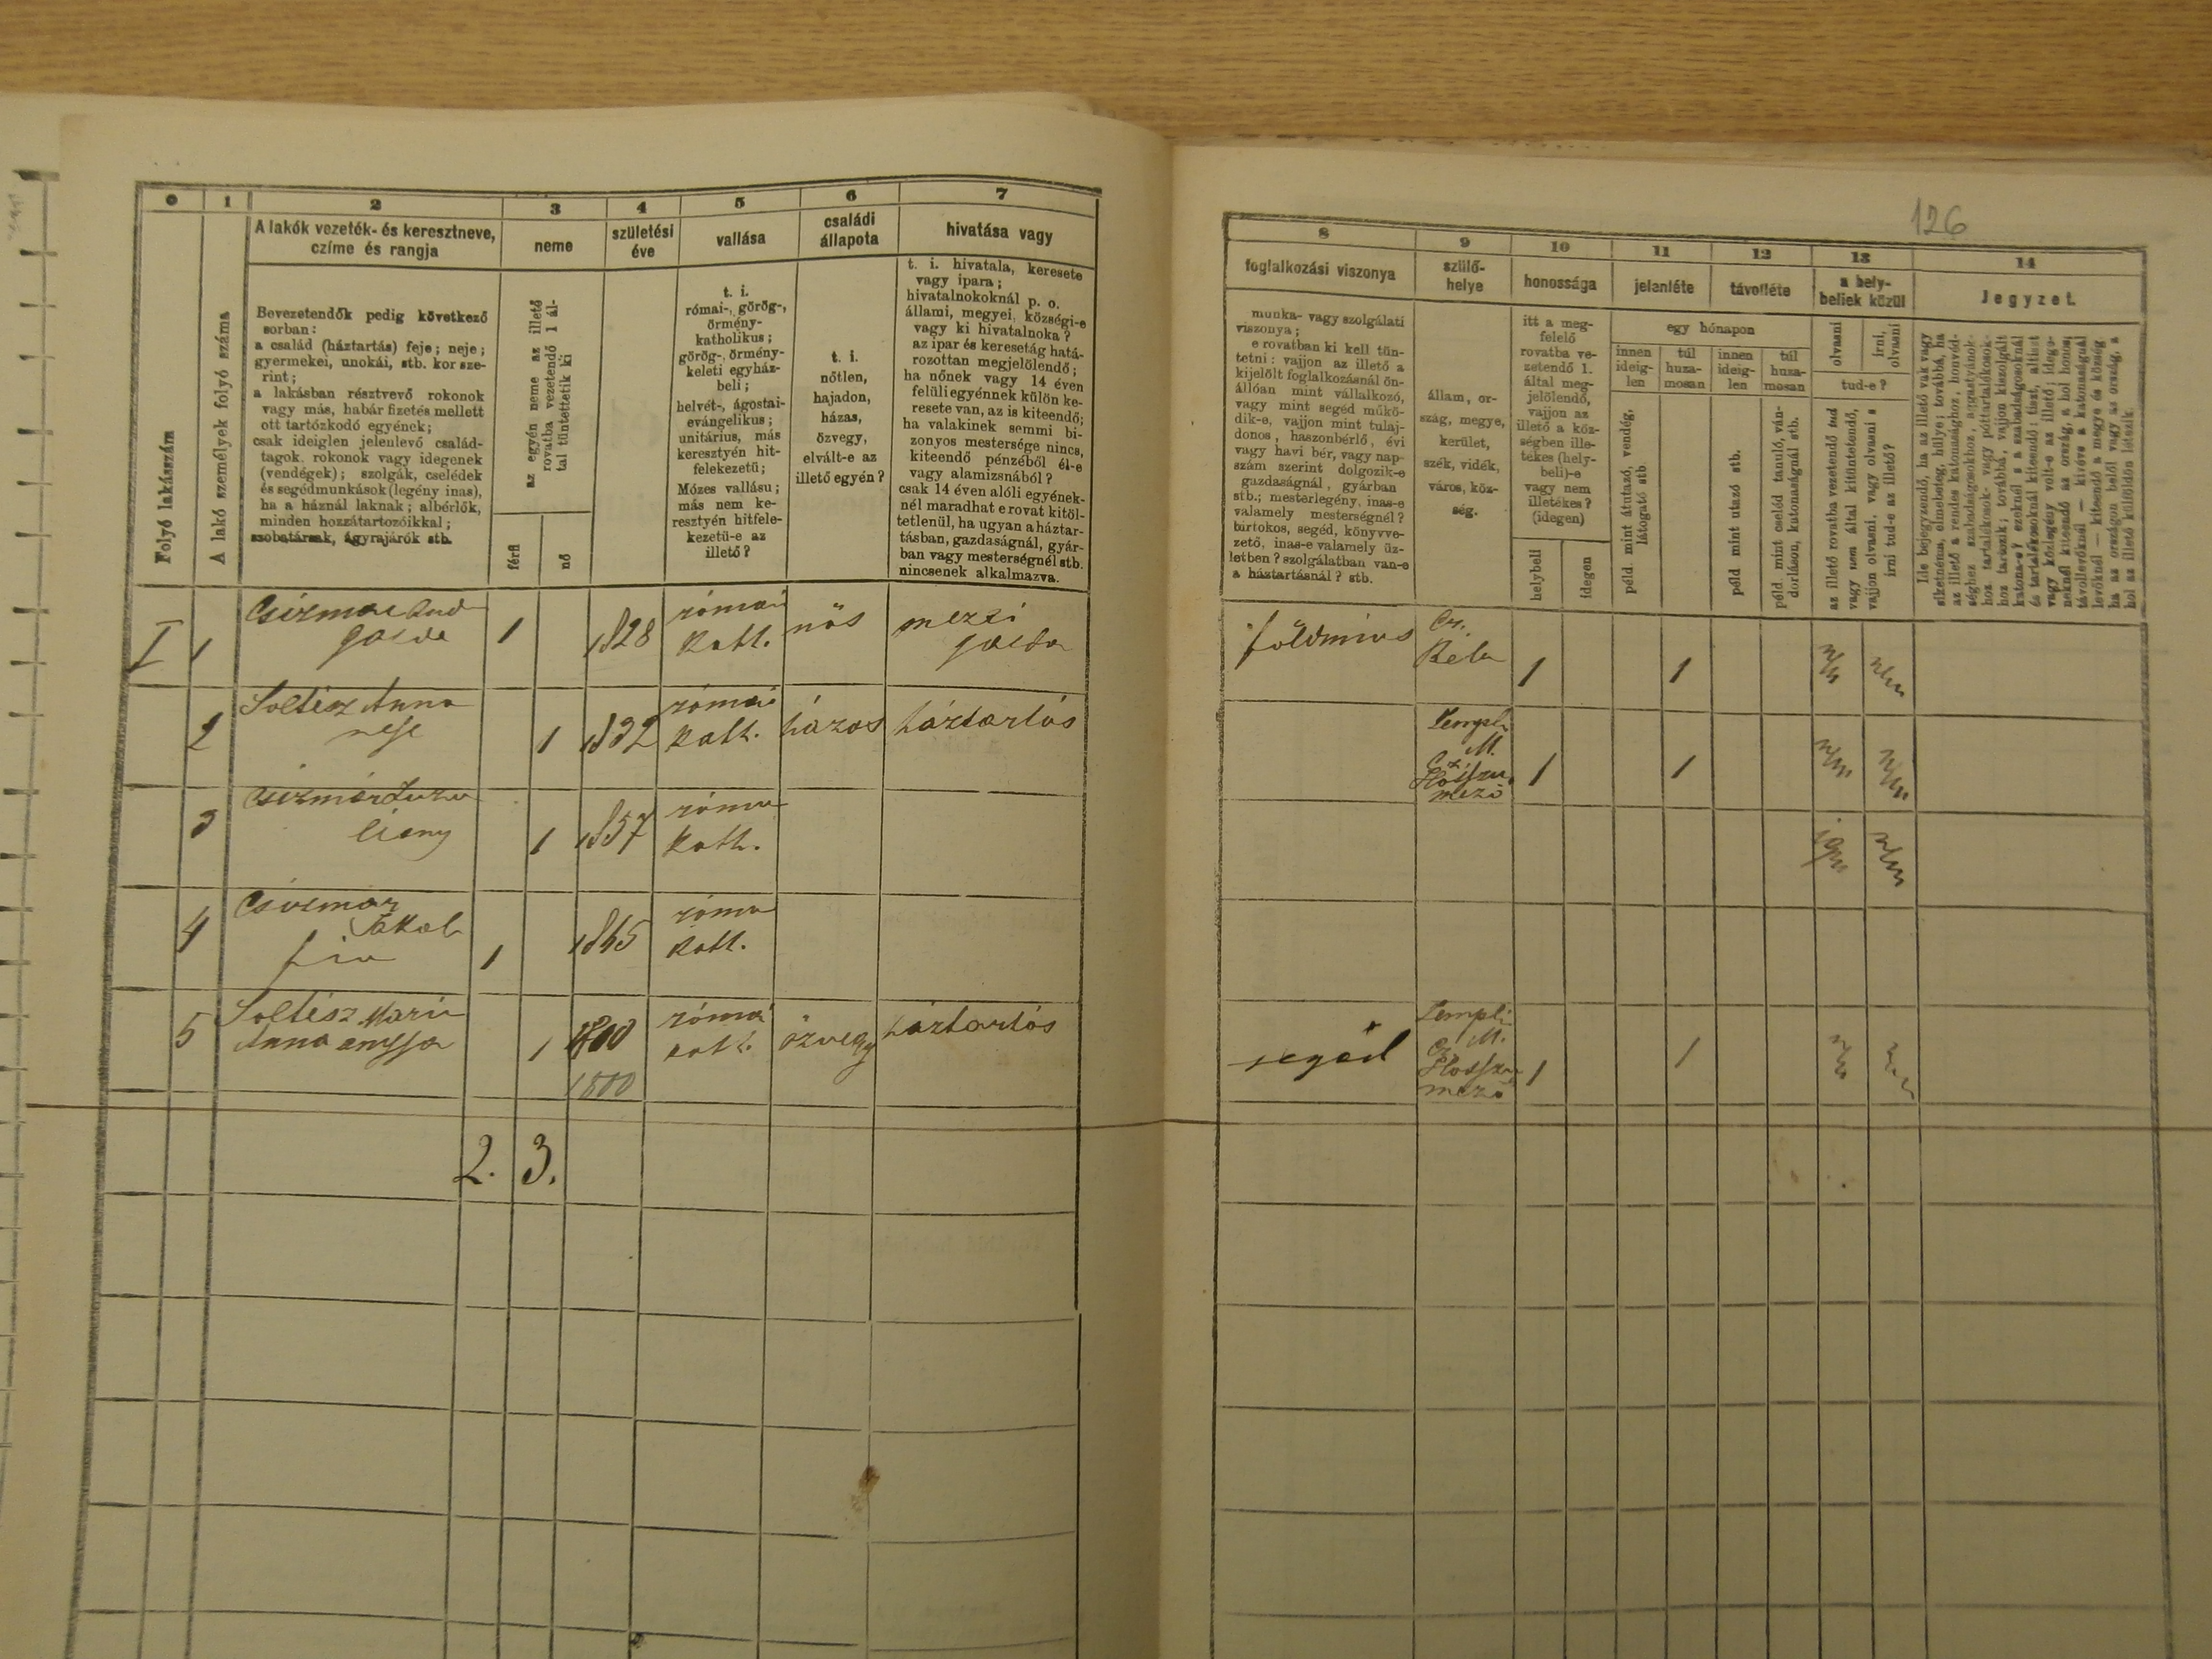 126
0 1 2 3 4 5 6 7
A lakók vezeték- és keresztneve,
czíme és rangja
neme
születési
éve
vallása
családi
állapota
hivatása vagy
Folyó lakásszám
A lakó személyek folyó száma
Bevezetendők pedig következő
sorban:
a család (háztartás) feje; neje;
gyermekei, unokái, stb. kor sze-
rint;
a lakásban résztvevő rokonok
vagy más, habár fizetés mellett
ott tartózkodó egyének;
csak ideiglen jelenlevő család-
tagok. rokonok vagy idegenek
(vendégek); szolgák, cselédek
és segédmunkások (legény inas),
ha a háznál laknak; albérlők,
minden hozzátartozóikkal;
szobatársak, ágyrajárók stb.
az egyén neme az illető
rovatba vezetendő 1 ál-
tal tüntettetik ki
férfi
nő
t. i.
római-, görög-,
örmény-
katholikus;
görög-, örmény-
keleti egyház-
beli;
helvét-, ágostai-
evángelikus;
unitárius, más
keresztyén hit-
felekezetű;
Mózes vallásu;
más nem ke-
resztyén hitfele-
kezetü-e az
illető?
t. i.
nőtlen,
hajadon,
házas,
özvegy,
elvált-e az
illető egyén?
t. i. hivatala, keresete
vagy ipara;
hivatalnokoknál p. o.
állami, megyei, községi-e
vagy ki hivatalnoka?
az ipar és keresetág hatá-
rozottan megjelölendő;
ha nőnek vagy 14 éven
felüli egyénnek külön ke-
resete van, az is kiteendő;
ha valakinek semmi bi-
zonyos mestersége nincs,
kiteendő pénzéből él-e
vagy alamizsnából?
csak 14 éven alóli egyének-
nél maradhat e rovat kitöl-
tetlenül, ha ugyan a háztar-
tásban, gazdaságnál, gyár-
ban vagy mesterségnél stb.
nincsenek alkalmazva.
8 9 10 11 12 13 14
foglalkozási viszonya
szülő-
helye
honossága
jelenléte
távolléte
a hely-
beliek közül
Jegyzet.
munka- vagy szolgálati
viszonya;
e rovatban ki kell tün-
tetni: vajjon az illető a
kijelölt foglalkozásnál ön-
állóan mint vállalkozó,
vagy mint segédműkö-
dik-e, vajjon mint tulaj-
donos, haszonbérlő, évi
vagy havi bér, vagy nap-
szám szerint dolgozik-e
gazdaságnál, gyárban
stb.; mesterlegény, inas-e
valamely mesterségnél?
birtokos, segéd, könyvve-
zető, inas-e valamely üz-
letben? szolgálatban van-e
a háztartásnál? stb.
állam, or-
szág, megye,
kerület,
szék, vidék,
város, köz-
ség.
itt a meg-
felelő
rovatba ve-
zetendő 1.
által meg-
jelölendő,
vajjon az
illető a köz-
ségben ille-
tékes (hely-
beli)-e
vagy nem
illetékes?
(idegen)
helybeli
idegen
egy hónapon
innen
ideig-
len
túl
huza-
mosan
innen
ideig-
len
túl
huza-
mosan
péld. mint átutazó, vendég,
látogató stb.
péld mint utazó stb.
péld. mint cseléd tanuló, ván-
dorláson, katonaságnál stb.
olvasni
irni,
olvasni
tud-e?
az illető rovatba vezetendő tud
vagy nem által kitüntetendő,
vajjon olvasni, vagy olvasni s
irni tud-e az illető?
Ide bejegyzendő, ha az illető vak vagy
siketnéma, elmebeteg, hülye; továbbá, ha
az illető a rendes katonasághoz, honvéd-
séghez szabadságosokhoz, aggastyánok-
hoz tartalékosok- vagy póttartalékosok-
hoz tartozik; továbbá, vajjon kiszolgált
katona-e? ezeknél s a szabadságosoknál
és tartalékosoknál kiteendő: tiszt, altiszt
vagy közlegény volt-e az illető; idege-
neknél kiteendő az ország, a hol honos;
távollevőknél — kivéve a katonaságnál
levőknél — kiteendő a megye és község
ha az országon belől vagy az ország, a
hol az illető külföldön létezik.
I 1 1 1828 római nős mezei
gazda Kath. gazda
földmives 1 1
2 Soltész Anna 1 1832 római házas háztartós
neje Kath.
M. 1 1
mező
3 1 1857
Kath.
4 Csizmár 1 1865
fia Kath.
5 Soltész Mária 1 római özvegy háztartós
Anna annya 1800
segéd M. 1 1
mező
2. 3.